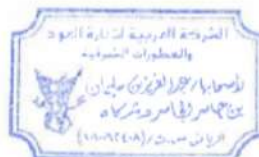 الشركة العربية لتجارة العود
والعطورات الشرقية
لأصحابها/عبدالعزيز بن سليمان
بن جاسر الجاسر وشركاه
الرياض